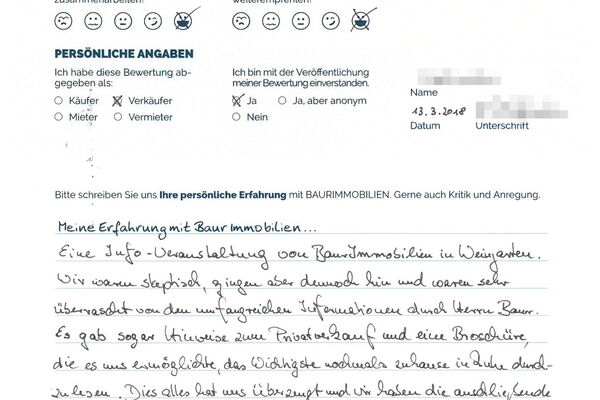 zusammenarbeiten?
weiterempfehlen?
PERSÖNLICHE ANGABEN
Ich habe diese Bewertung ab-
gegeben als:
Käufer Verkäufer
Mieter Vermieter
Ich bin mit der Veröffentlichung
meiner Bewertung einverstanden.
Ja Ja, aber anonym
Nein
Name
13.3.2018
Datum Unterschrift
Bitte schreiben Sie uns Ihre persönliche Erfahrung mit BAURIMMOBILIEN. Gerne auch Kritik und Anregung.
Meine Erfahrung mit Baur Immobilien...
Eine Info-Veranstaltung von BaurImmobilien in Weingarten.
Wir waren skeptisch, gingen aber dennoch hin und waren sehr
überrascht von den umfangreichen Informationen durch Herrn Baur.
Es gab sogar Hinweise zum Privatverkauf und eine Broschüre,
die es uns ermöglichte, das Wichtigste nochmals zuhause in Ruhe durch-
zulesen. Dies alles hat uns überzeugt und wir haben die anschließende